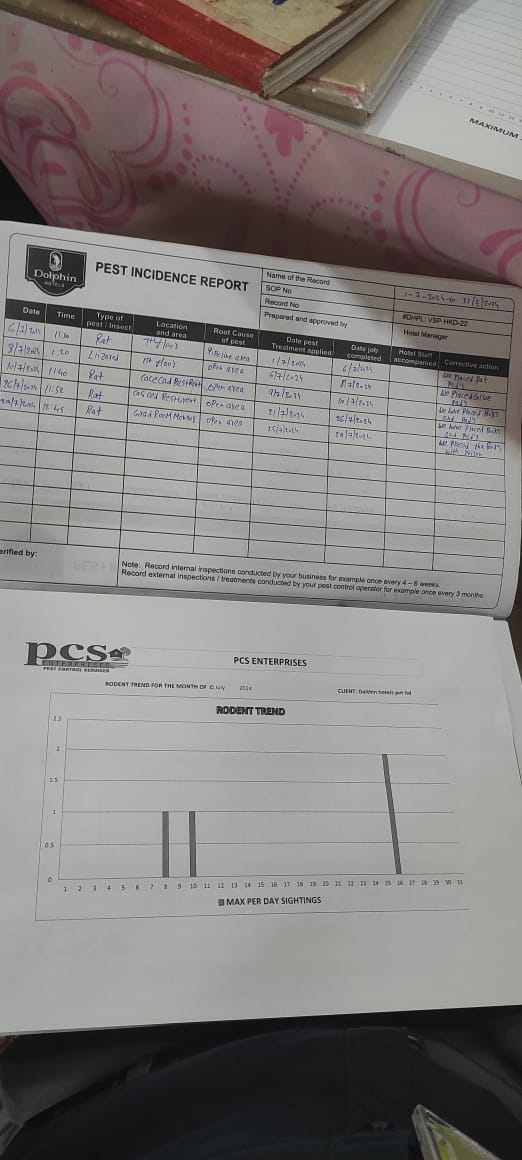 MAXIMUM
Dolphin
HOTELS
PEST INCIDENCE REPORT
Name of the Record
1-7-2024 to 31/7/2024
SOP No
Record No
#DHPL: VSP-HKD-22
Prepared and approved by
Hotel Manager
Date Time Type of pest / Insect Location and area Root Cause of pest Date pest Treatment applied Date job completed Hotel Staff accompanied Corrective action
6/7/2024 11:30 Rat floor area 1/7/2024 6/7/2024 We Placed Rat Pad's
8/7/2024 Lizared 1st floor open area 6/7/2024 8/7/2024 We Placed Glue Pad's
10/7/2024 11:40 Rat open area 9/7/2024 10/7/2024 We have Placed Box's and Pad's
26/7/2024 11:52 Rat open area 21/7/2024 26/7/2024 We have Placed Box's and Pad's
29/7/2024 12:45 Rat open area 25/7/2024 29/7/2024 We Placed the Box's with
erified by:
Note: Record internal inspections conducted by your business for example once every 4 – 6 weeks.
Record external inspections / treatments conducted by your pest control operator for example once every 3 months.
pcs
ENTERPRISES
PEST CONTROL SERVICES
PCS ENTERPRISES
RODENT TREND FOR THE MONTH OF July 2024
CLIENT: Dolthin hotels pvt ltd
RODENT TREND
2.5
2
1.5
1
0.5
0
1 2 3 4 5 6 7 8 9 10 11 12 13 14 15 16 17 18 19 20 21 22 23 24 25 26 27 28 29 30 31
MAX PER DAY SIGHTINGS